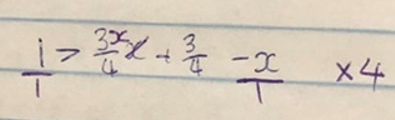 1/1 > 3x/4 + 3/4 -x/1 ×4